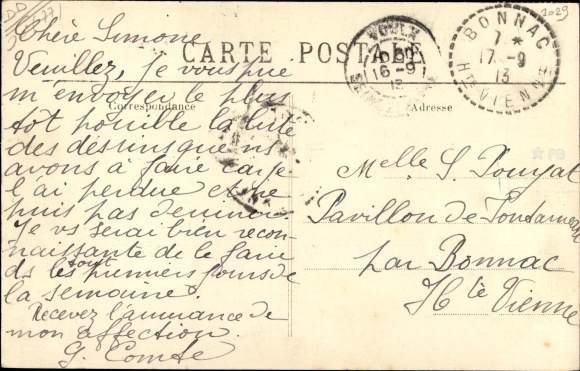 1029
Chère Simone
CARTE POSTALE
Veuillez, je vous prie
m'envoyer le plus
Correspondance
tôt possible la liste
des dessins que ns
avons à faire car je
l'ai perdue et ne
puis pas deviner
Je vs serai bien recon-
naissante de le faire
ds les tout premiers jours de
la semaine.
Recevez l'assurance de
mon affection.
G. Comte
16-9
13
BONNAC
7 *
17-9
13
HTE VIENNE
Adresse
Melle S. Pouyat
Pavillon de
par Bonnac
Hte Vienne